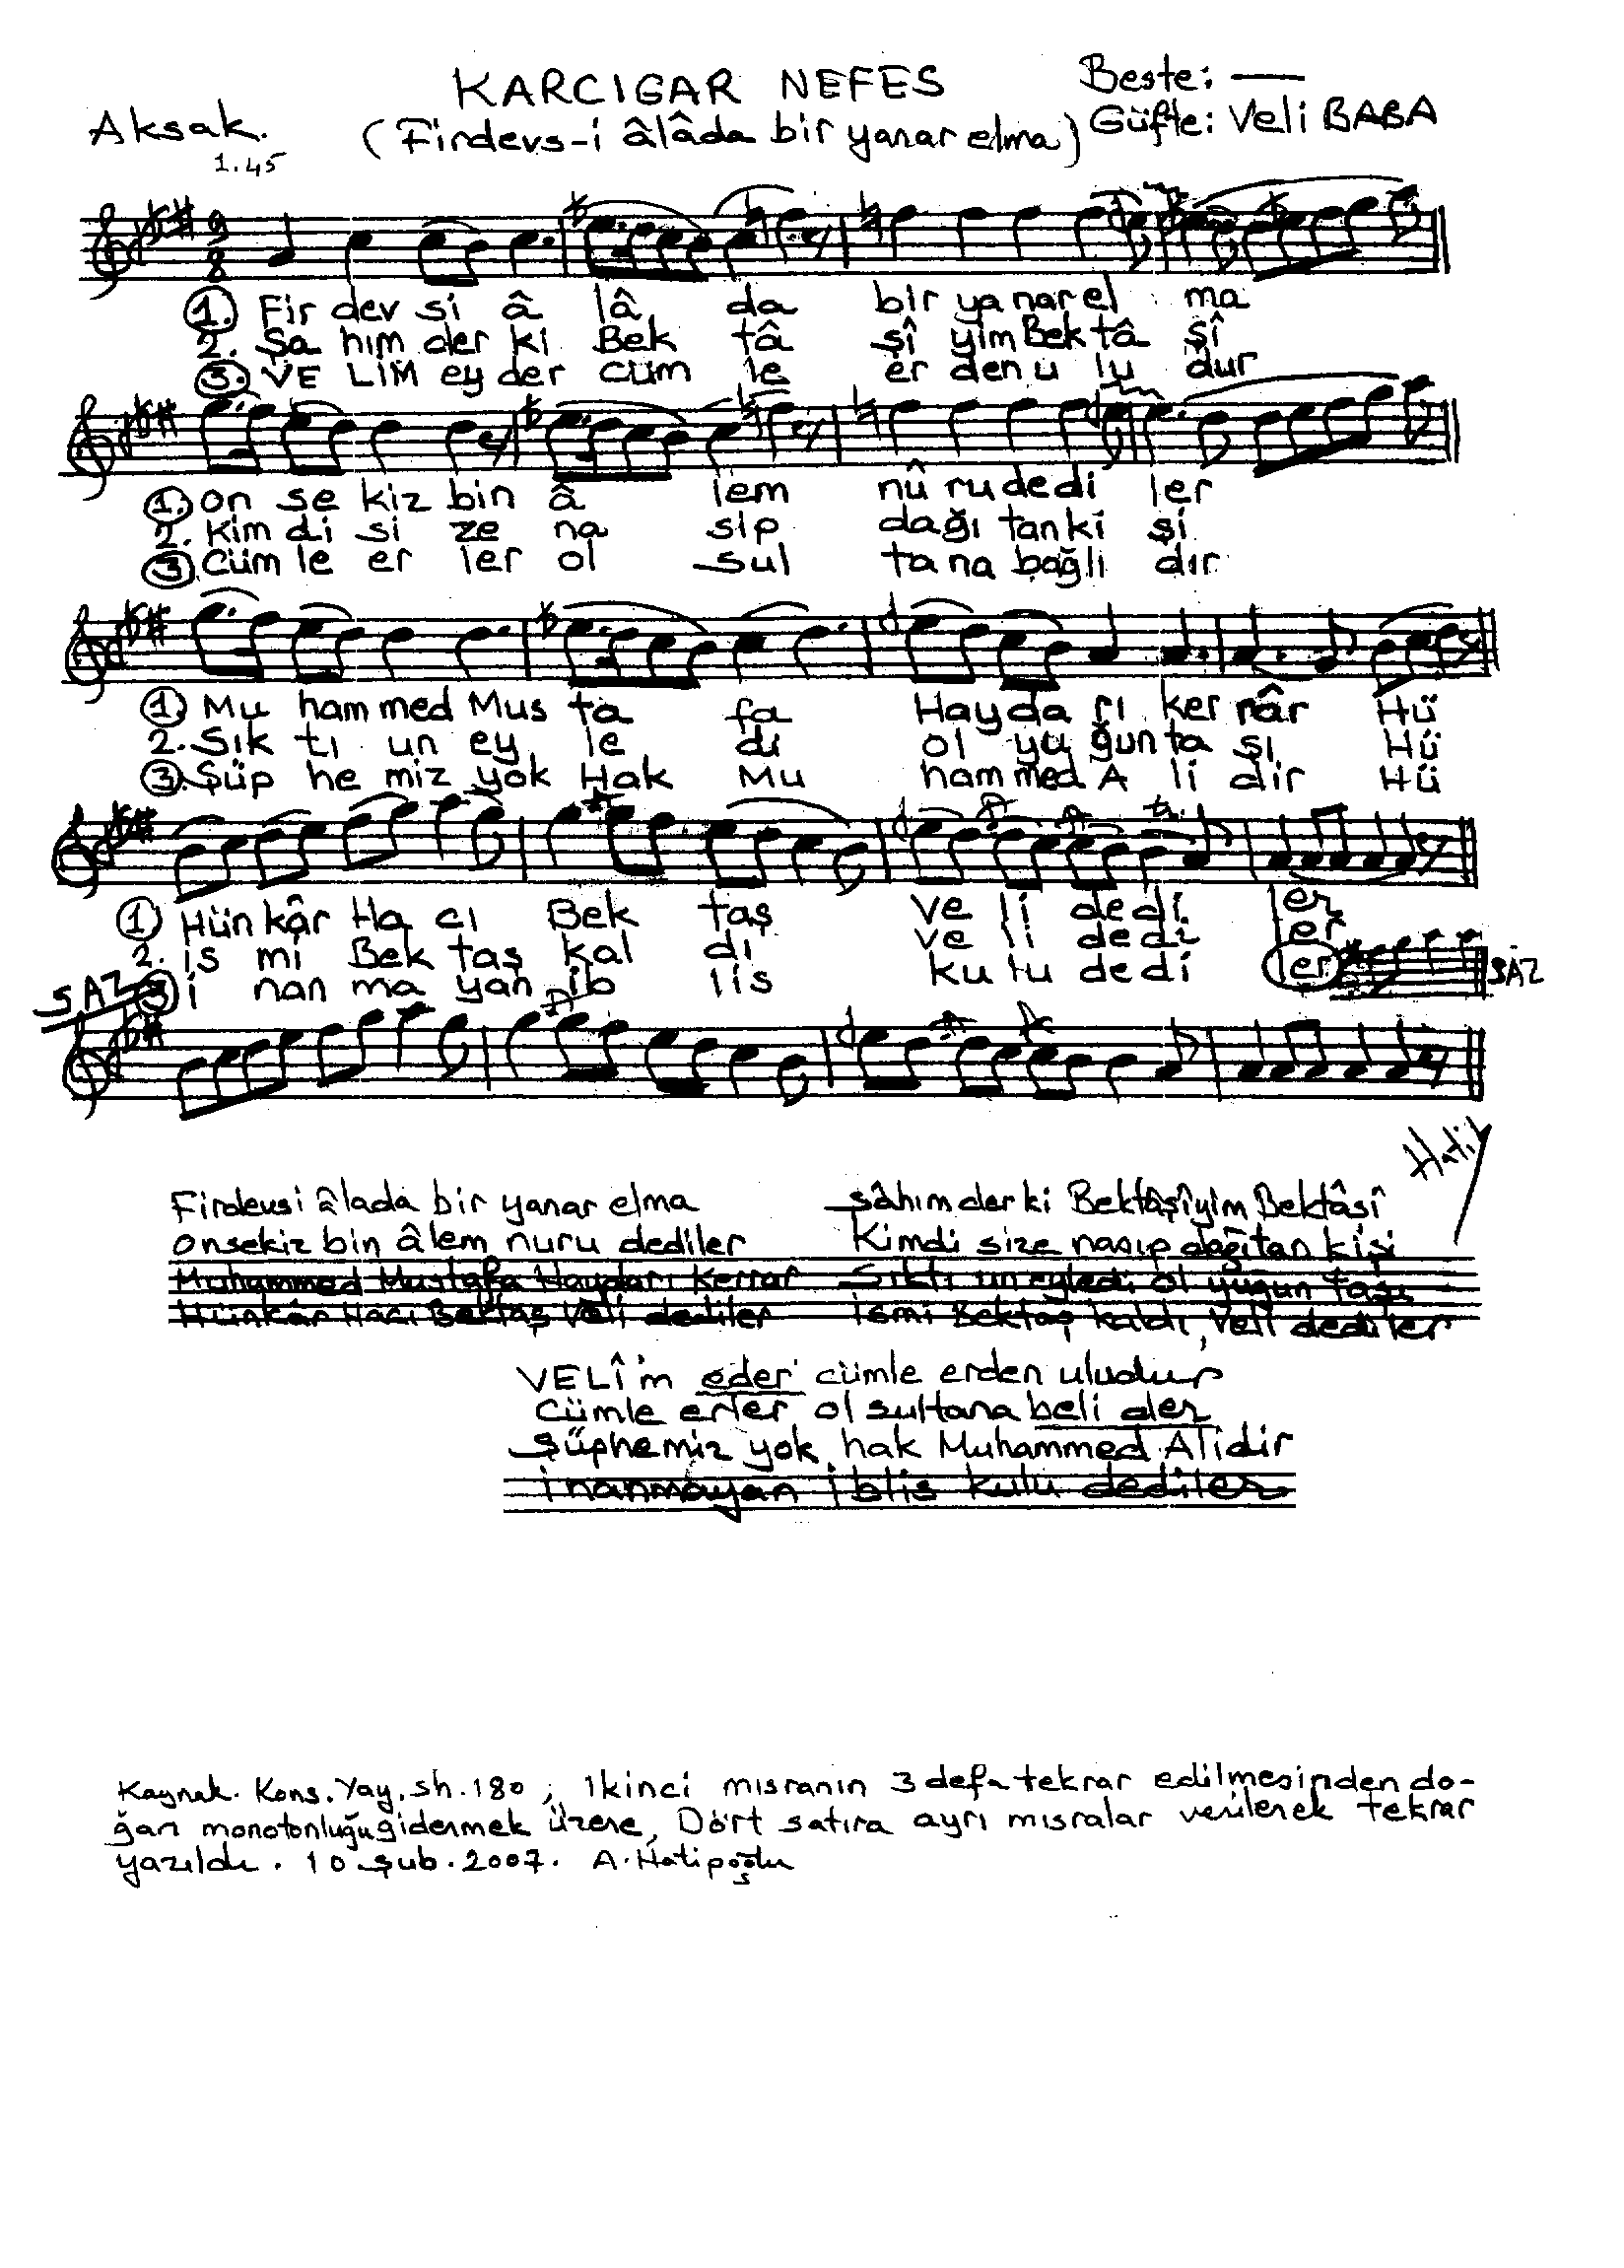 KARCIGAR NEFES
Beste: —
Aksak.
(Firdevs-i âlâda bir yanar elma)
Güfte: Veli BABA
1.45
9
8
1. Fir dev si â lâ da bir ya nar el ma
2. Şa hım der ki Bek tâ şî yim Bek tâ şî
3. VE LİM ey der cüm le er den u lu dur
1. on se kiz bin â lem nû ru dedi ler
2. Kim di si ze na sip dağı tan ki şi
3 Cüm le er ler ol sul ta na bağlı dır
1. Mu ham med Mus ta fa Hay da rı ker râr Hü
2. Sık tı un ey le di ol yu ğun ta şı Hü
3. Şüp he miz yok Hak Mu ham med A li dir Hü
1 Hün kâr Ha cı Bek taş Ve li dedi ler
2. is mi Bek taş kal dı ve li dedi ler
3 i nan ma yan ib lis ku lu dedi ler SAZ
SAZ
Hatip
Firdevsi âlada bir yanar elma
Onsekiz bin âlem nuru dediler
Muhammed Mustafa Haydarı Kerrar
Hünkâr Hacı Bektaş Veli dediler
şâhım der ki Bektâşîyim Bektâsî
Kimdi size nasıp dağıtan kişi
Sıktı un eyledi ol yuğun taşı
ismi Bektaş kaldı, Veli dediler
VELÎ'm eder cümle erden uludur
Cümle erler ol sultana beli der
Şüphemiz yok hak Muhammed Alidir
inanmayan iblis kulu dediler
Kaynak. Kons. Yay. sh. 180 ; Ikinci mısranın 3 defa tekrar edilmesinden do-
ğan monotonluğu gidermek üzere, Dört satıra ayrı mısralar verilerek tekrar
yazıldı. 10 şub. 2007. A. Hatipoğlu